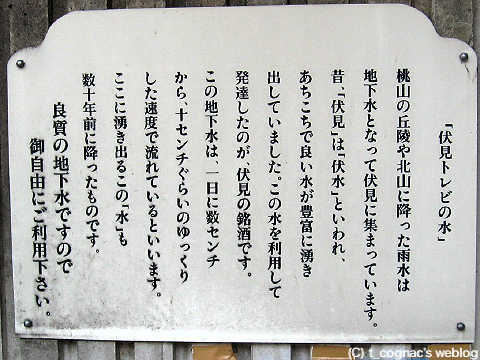 「伏見トレビの水」
桃山の丘陵や北山に降った雨水は
地下水となって伏見に集まっています。
昔、「伏見」は「伏水」といわれ、
あちこちで良い水が豊富に湧き
出していました。この水を利用して
発達したのが、伏見の銘酒です。
この地下水は、一日に数センチ
から、十センチぐらいのゆっくり
した速度で流れているといいます。
ここに湧き出るこの「水」も
数十年前に降ったものです。
良質の地下水ですので
御自由にご利用下さい。
(C) t_cognac's weblog